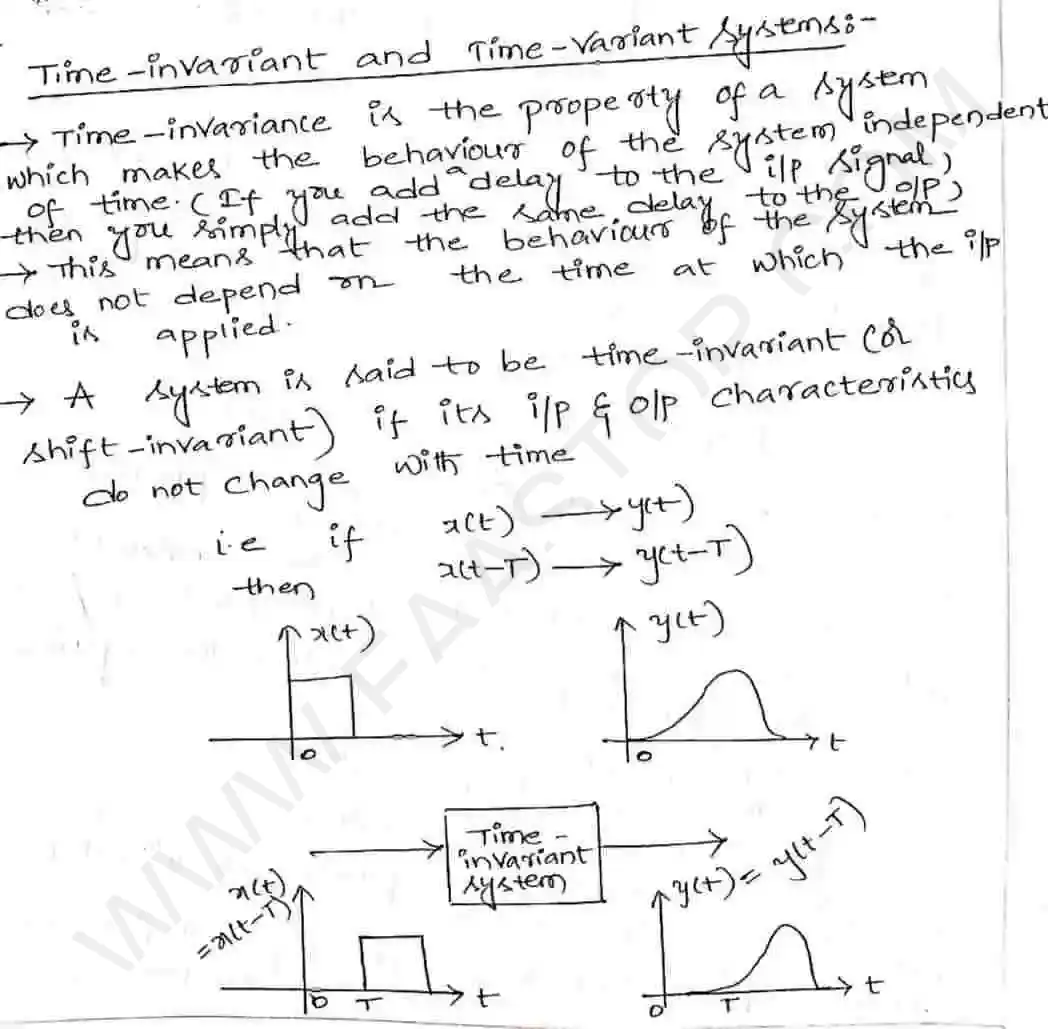 Time-invariant and Time-Variant Systems:-
→ Time-invariance is the property of a system
which makes the behaviour of the system independent
of time. (If you add a delay to the i/p signal,
then you simply add the same delay to the o/p)
→ This means that the behaviour of the system
does not depend on the time at which the i/p
is applied.
→ A system is said to be time-invariant (or
shift-invariant) if its i/p & o/p characteristics
do not change with time
i.e if x(t) → y(t)
then x(t-T) → y(t-T)
x(t) y(t)
0 t. 0 t
Time-
invariant
system
x(t)
=x(t-T)
y(t) = y(t-T)
0 T t 0 T t
WWW.FAASTOP.COM